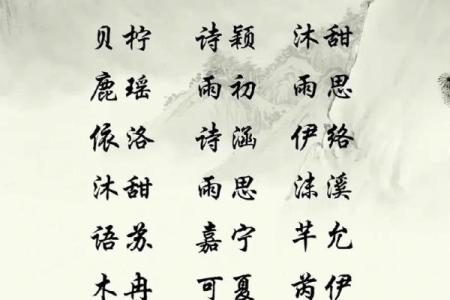 贝柠 诗颖 沐甜
鹿瑶 雨初 雨思
依洛 诗涵 伊络
沐甜 雨思 洣溪
语苏 嘉宁 芊允
木冉 可夏 芮伊